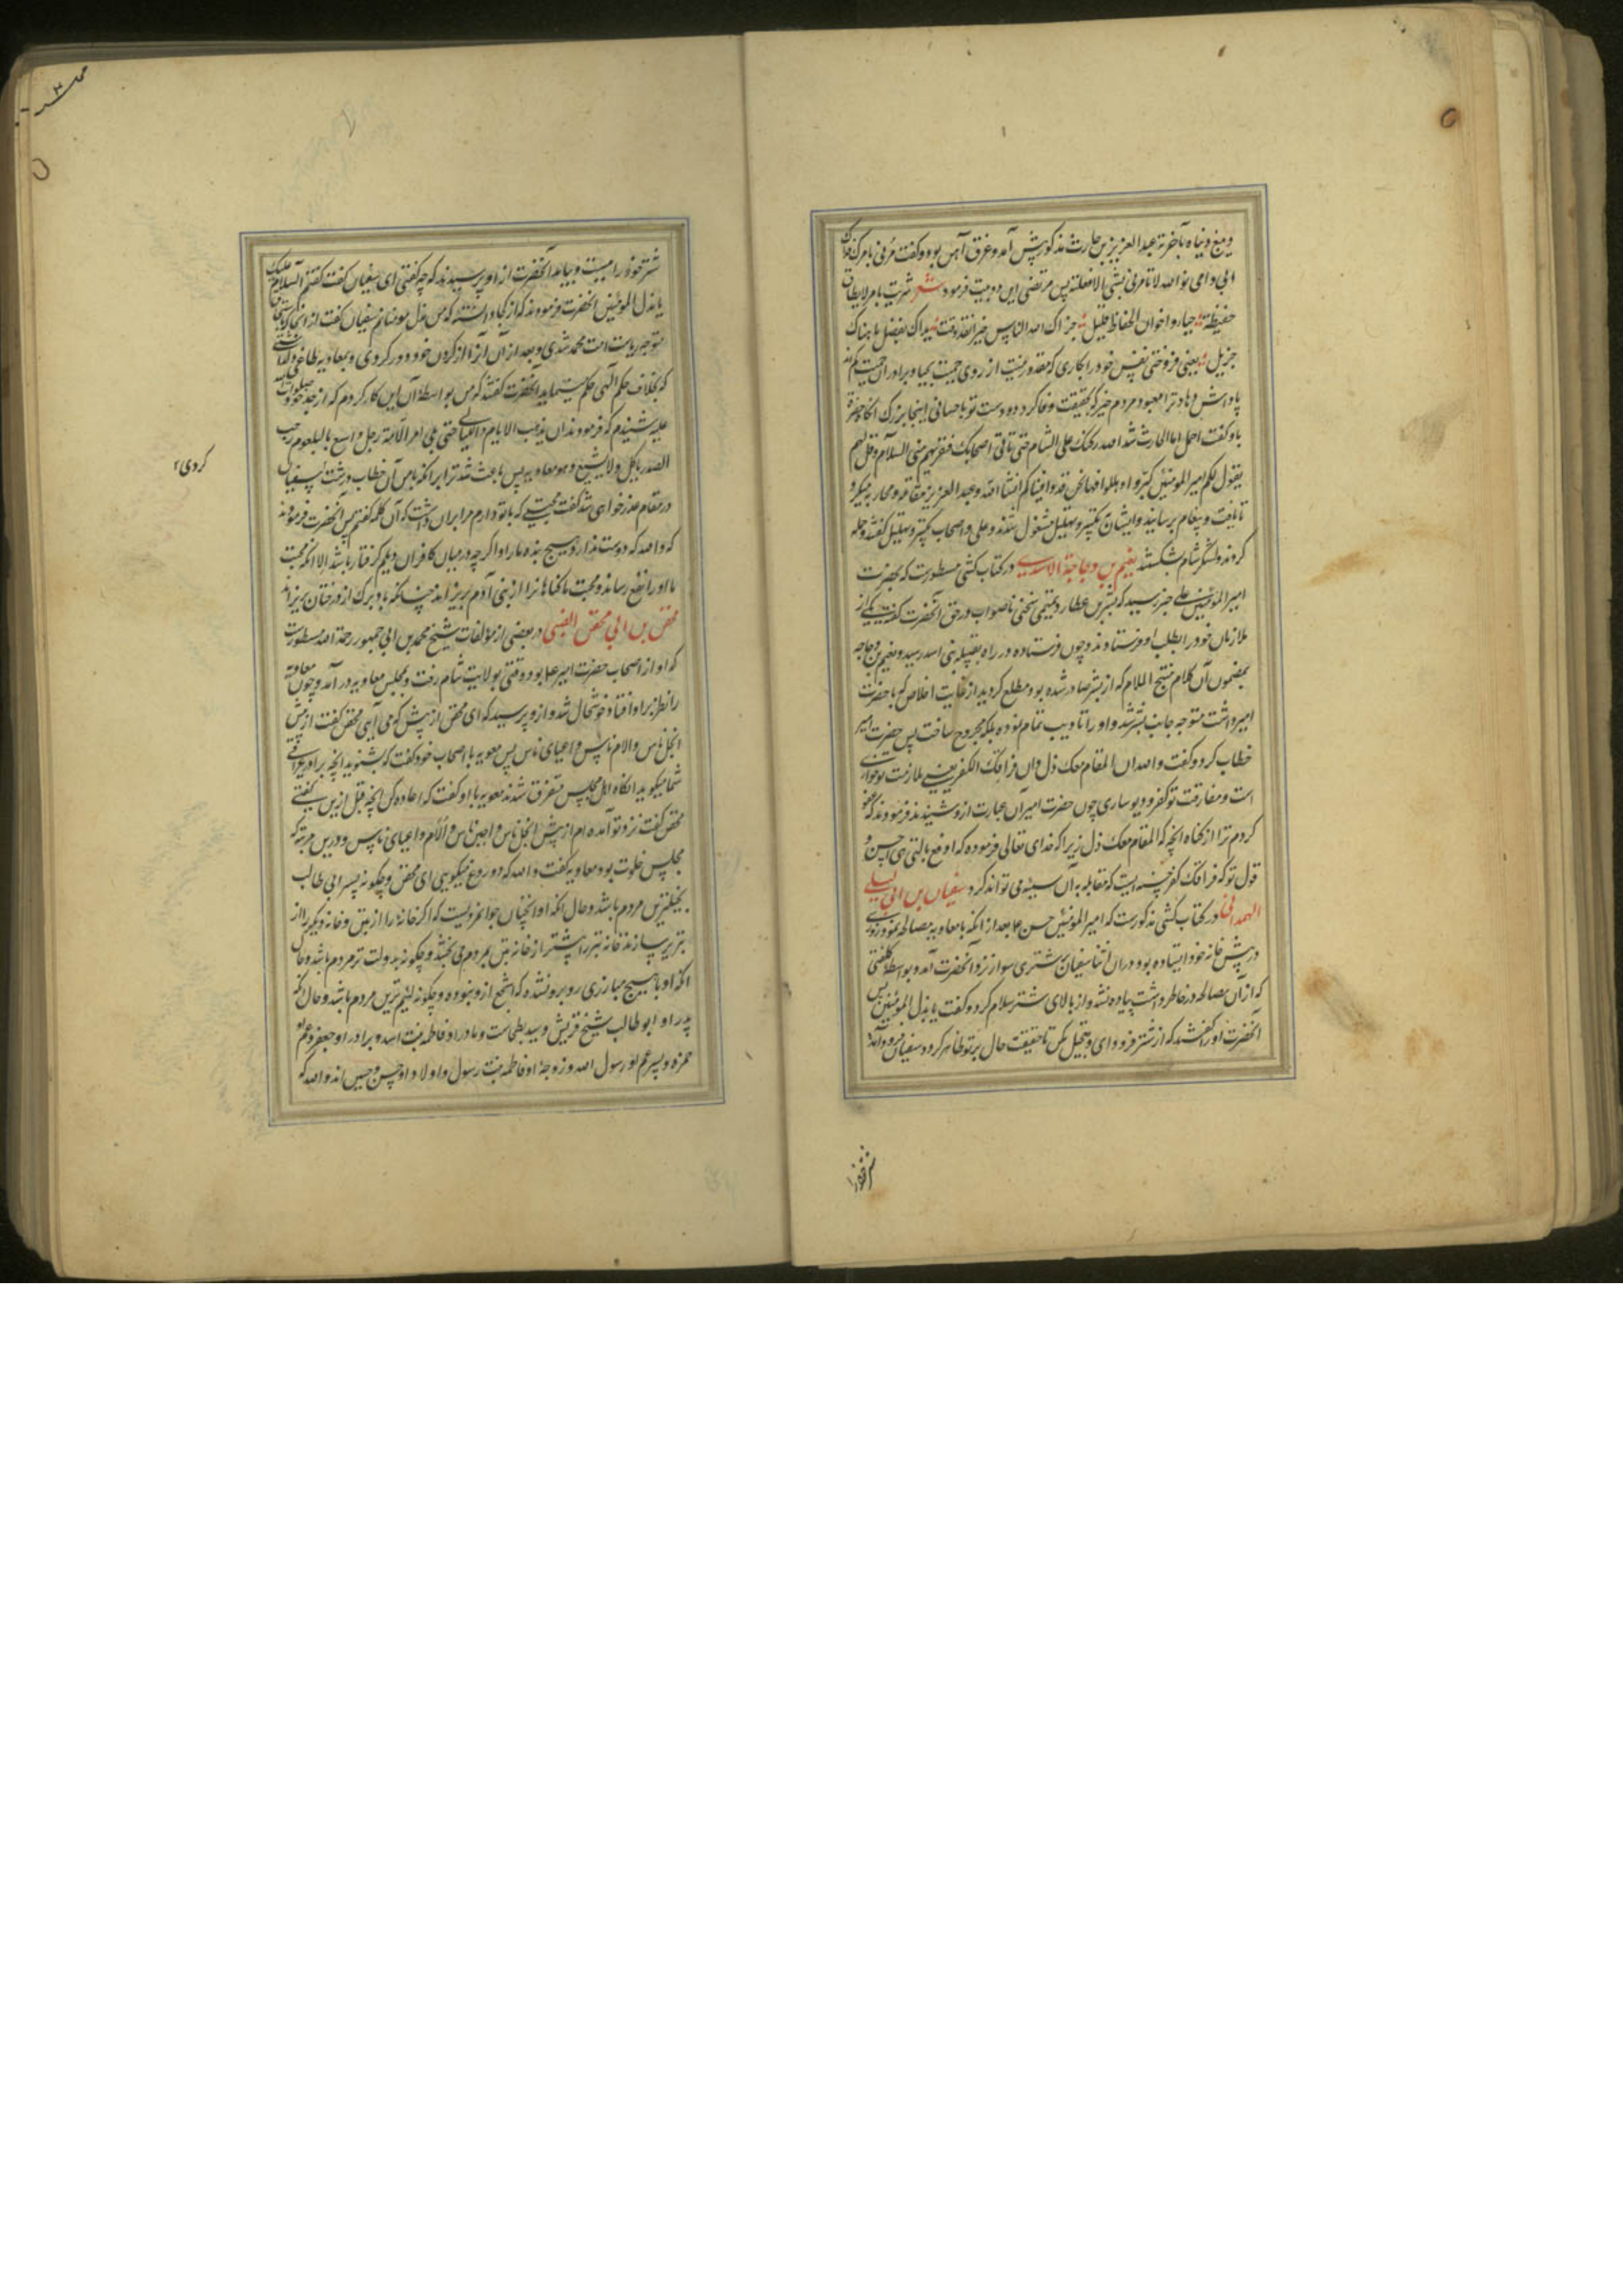 و میغ و نیاه تا آخر نه عبدالعزیز بن حارث مذکور پیش آمد و غرق آهن بود و گفت مرنی بامرک فداک
ابی و امی فوالله لا تامرنی بشی الا فعلته پس مرتضی این دو بیت فرمود شعر شریت بامر لا یطاق
حفیظة حیا و اخوان الحفاظ قلیل جزاک اله الناس خیرا فقد وفت یداک بفضل ما هناک
جزیل یعنی فروختی نفس خود را بکاری که مقدور نیست از روی حمیت بحیا و برادران حمیت کم اند
پاداش دهاد ترا معبود مردم خیر که بحقیقت وفا کرد دو دست تو باحسانی اینجا بزرک انکاه حضرت
باو گفت احمل ابا الحارث شد الله رکنک علی الشام حتی تاتی اصحابک فتقریهم منی السلام و قل لهم
یقول لکم امیر المومنین کبروا و هللوا فها نحن قد وافیناکم انشا الله و عبد العزیز مقاتله و محاربه میکرد
تا یافت و پیغام برسانید و ایشان بتکبیر و تهلیل مشغول شدند و علی و اصحاب تکبیر و تهلیل گفتند و حمله
کردند و لشکر شام شکستند نعیم بن دجاجة الاسدی در کتاب کشی مسطورست که بحضرت
امیر المومنین علی خبر رسید که بشر بن عطارد تمیمی سخنی ناصواب در حق آنحضرت گفته یکی از
ملازمان خود را بطلب او فرستادند و چون فرستاده در راه بقبیله بنی اسد رسید و نعیم بن دجاجه
بمضمون آن کلام منتج الملام که از بشر صادر شده بود مطلع گردید از غایت اخلاص که با حضرت
امیر داشت متوجه جانب بشر شد و او را تادیب تمام نموده بلکه مجروح ساخت پس حضرت امیر
خطاب کرد و گفت والله ان المقام معک ذل و ان فراقک الکفر یعنی ملازمت تو خواری
است و مفارقت تو کفر و دیوساری چون حضرت امیر آن عبارت ازو شنیدند فرمودند که عفو
کردم ترا از کناه انچه که المقام معک ذل زیرا که خدای تعالی فرموده که ادفع بالتی هی احسن و
قول تو که فراقک کفر حسنه ایست که مقابله به آن سیئه می تواند کرد سفیان بن ابی لیلی
الهمدانی در کتاب کشی مذکورست که امیر المومنین حسن ع بعد از انکه با معاویه مصالحه نمود روزی
در پیش خانه خود ایستاده بود در ان اثنا سفیان بشتری سوار نزد آنحضرت آمد و بواسطه کلفتی
که از آن مصالحه در خاطر داشت پیاده نشد و از بالای شتر سلام کرد و گفت یا مذل المومنین پس
آنحضرت او را گفتند که از شتر فرود آی و تعجیل مکن تا حقیقت حال بر تو ظاهر کردد سفیان فرود آمد و
شتر خود را
شتر خود را ببست و بیامد آنحضرت از او پرسیدند که چه گفتی ای سفیان گفت گفتم السلام علیک
یا مذل المومنین آنحضرت فرمودند که از کجا دانسته که من مذل مومنانم سفیان گفت از انجا که
متوجه ریاست امت محمد شدی و بعد از آن آنرا از کردن خود دور کردی و بمعاویه طاغی
که بخلاف حکم الهی حکم مینماید آنحضرت گفتند که من بواسطه آن این کار کردم که از جد خود صلوات الله
علیه شنیدم که فرمودند ان یذهب الایام و اللیالی حتی یلی امر الامة رجل واسع البلعوم رحب
الصدر یاکل و لا یشبع و هو معاویه پس باعث شد ترا بر انکه با من آن خطاب درشت سفیان
در مقام عذرخواهی شد گفت محبتی که با تو دارم مرا بر ان داشت که آن کلمه گفتم پس آنحضرت فرمودند
که والله که دوست ندارد هیچ بنده مارا و اگرچه در میان کافران دیلم گرفتار باشد الا انکه محبت
ما او را نفع رساند و محبت ما کناهانرا از بنی آدم بریزاند چنانکه باد برک از درختان بریزاند
محقن بن ابی محقن الضبی در بعضی از مؤلفات شیخ محمد بن ابی جمهور رحمة الله مسطورست
که او از اصحاب حضرت امیر ع بود وقتی بولایت شام رفت و بمجلس معاویه در آمد و چون معاویه
را نظر بر او افتاد خوشحال شد و ازو پرسید که ای محقن از پیش که می آیی محقن گفت از پیش
ابخل ناس و الام ناس و اعیای ناس پس معویه با اصحاب خود گفت که بشنوید انچه برادر عراقی
شما میگوید انگاه اهل مجلس متفرق شدند معویه با او گفت که اعاده کن انچه قبل ازین گفتی
محقن گفت نزد تو آمده ام از پیش ابخل ناس و اجبن ناس و الام و اعیای ناس و درین مرتبه که
مجلس خلوت بود معاویه گفت والله که دروغ میگویی ای محقن و چگونه پسر ابی طالب
بخیلترین مردم باشد و حال انکه او انچنان جوانمردیست که اکر خانهٔ را از تبن و خانه دیگر را از
تبر پر سازند خانه تبر را پیشتر از خانه تبن بمردم می بخشد و چگونه بددل تر مردم باشد و حال
انکه او با هیچ مبارزی روبرو نشده که اشجع ازو نبوده و چگونه لئیم ترین مردم باشد و حال انکه
پدر او ابو طالب شیخ قریش و سید بطحاست و مادر او فاطمه بنت اسد و برادر او جعفر و عم او
حمزه و پسر عم او رسول الله و زوجهٔ او فاطمه بنت رسول و اولاد او حسن و حسین اند والله که
کردی